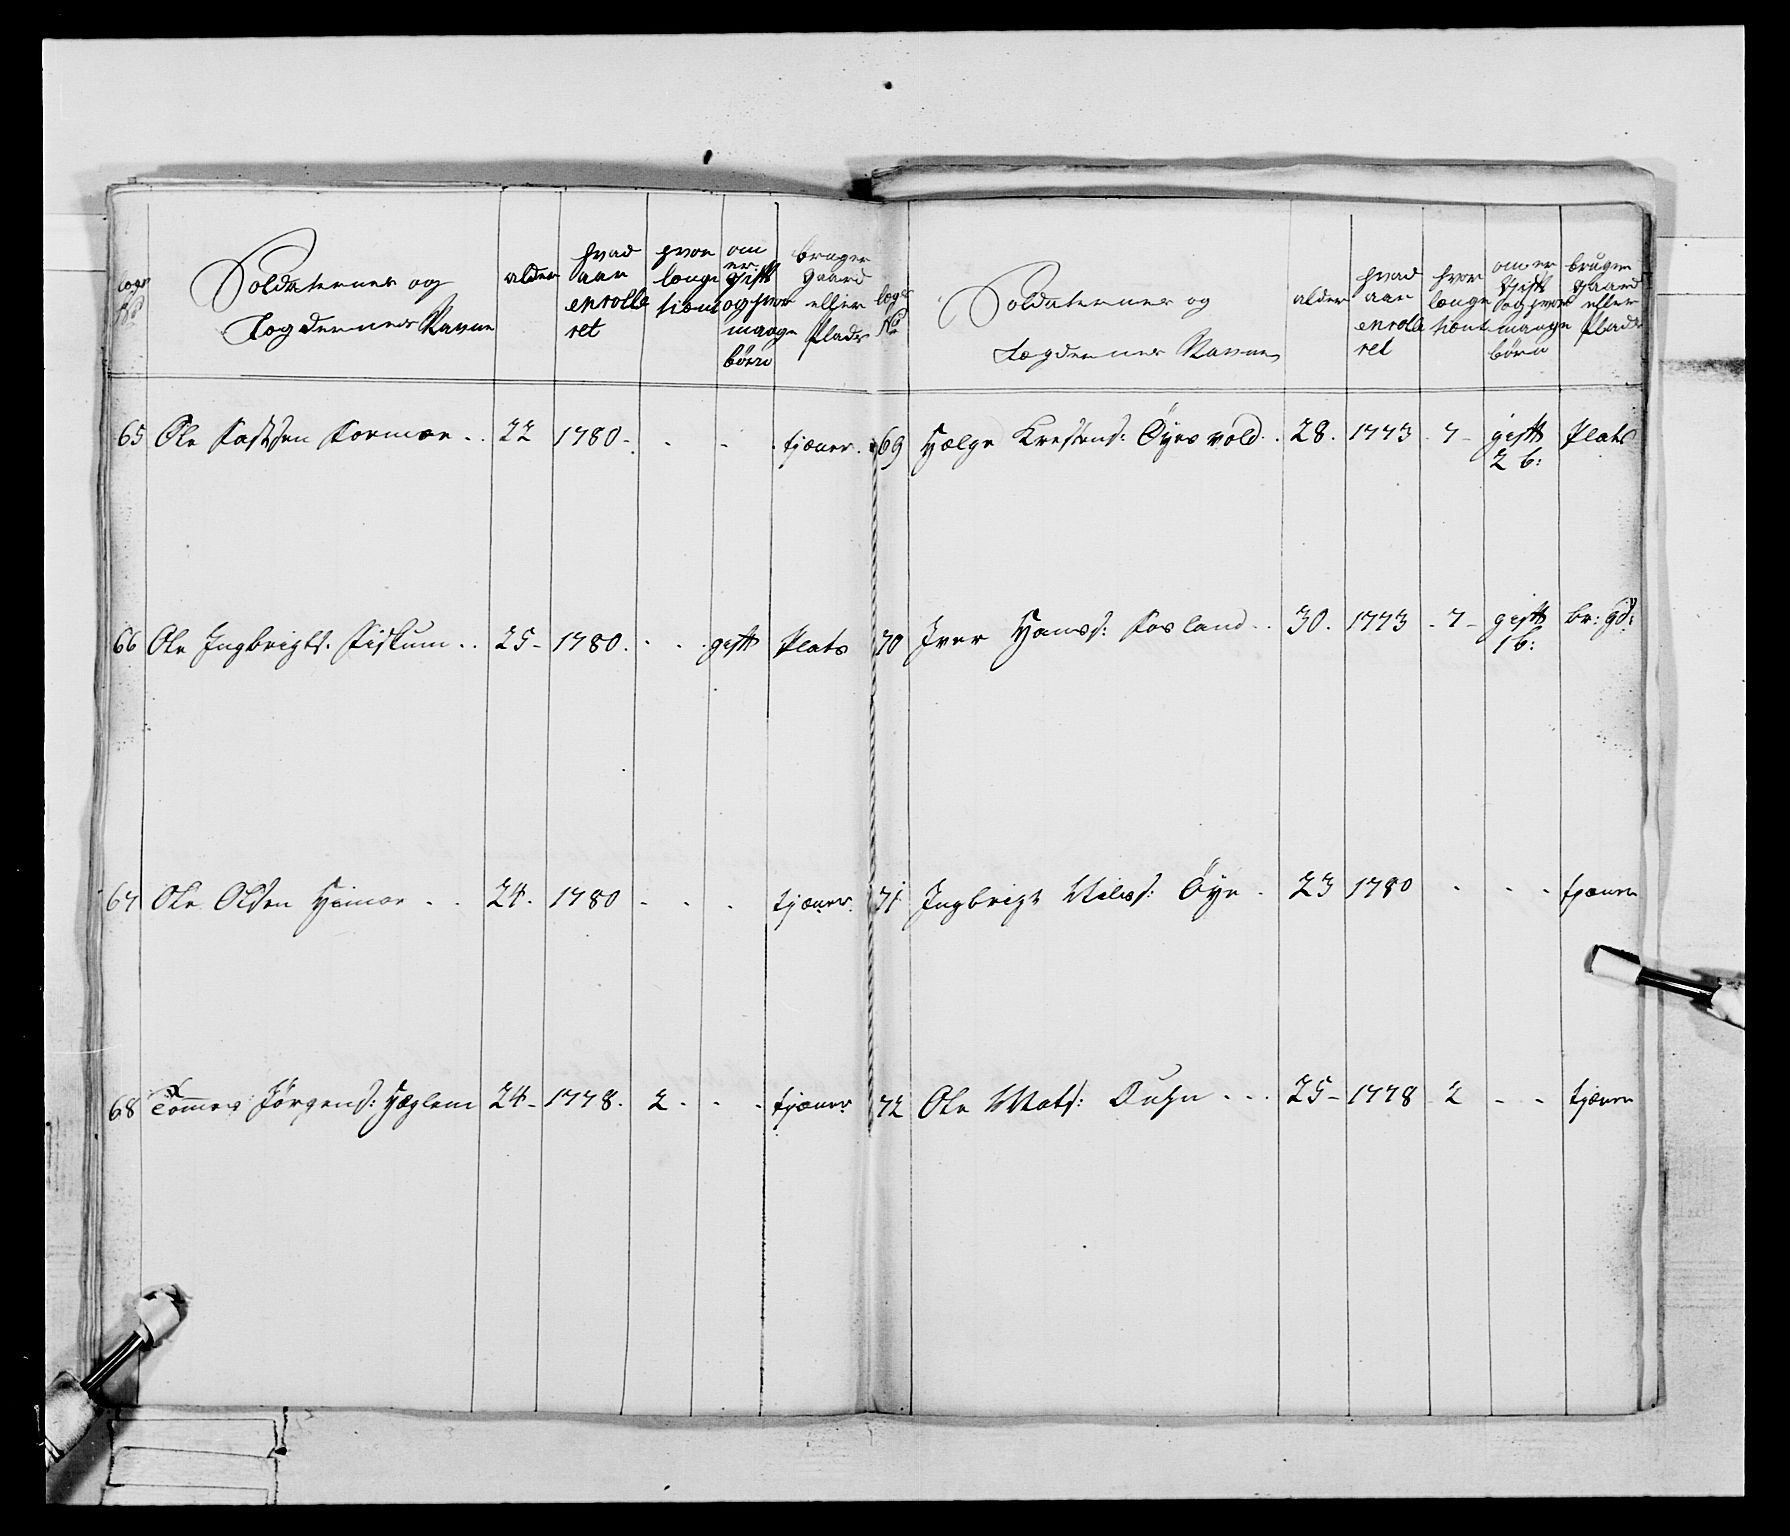 lægs
No
Soldaternes og
Lægdernes Navne
alder
hvad
aar
enrolle
ret
hvor
længe
tiænt
om
er
gift
og hvor
mange
børn
bruger
gaard
eller
Plads
65 Ole 22 1780 - - - tjæner
66 Ole Ingbrigts. Fiskum 25 - 1780 - - gift Plats
67 Ole Olsen Himoe 24. 1780 - - - tjæner
68 Tomes Jørgens: Hæglem 24 - 1778. 2 - - - tjæner
lægs
No
Soldaternes og
Lægdernes Navne
alder
hvad
aar
enrolle
ret
hvor
længe
tiænt
om er
gift
og hvor
mange
børn
bruger
gaard
eller
Plads
69 Hælge Krestens: Øyesvold 28. 1773 - 7 - gift Plats
2 b:
70 Iver Hanss: Fosland 30. 1773 - 7 - gift br: gd:
1 b:
71 Ingbrigt Nilss: Øye 23 1780 - - - tjæner
72 Ole Mats: Duhn 25 - 1778 2 - - tjæner